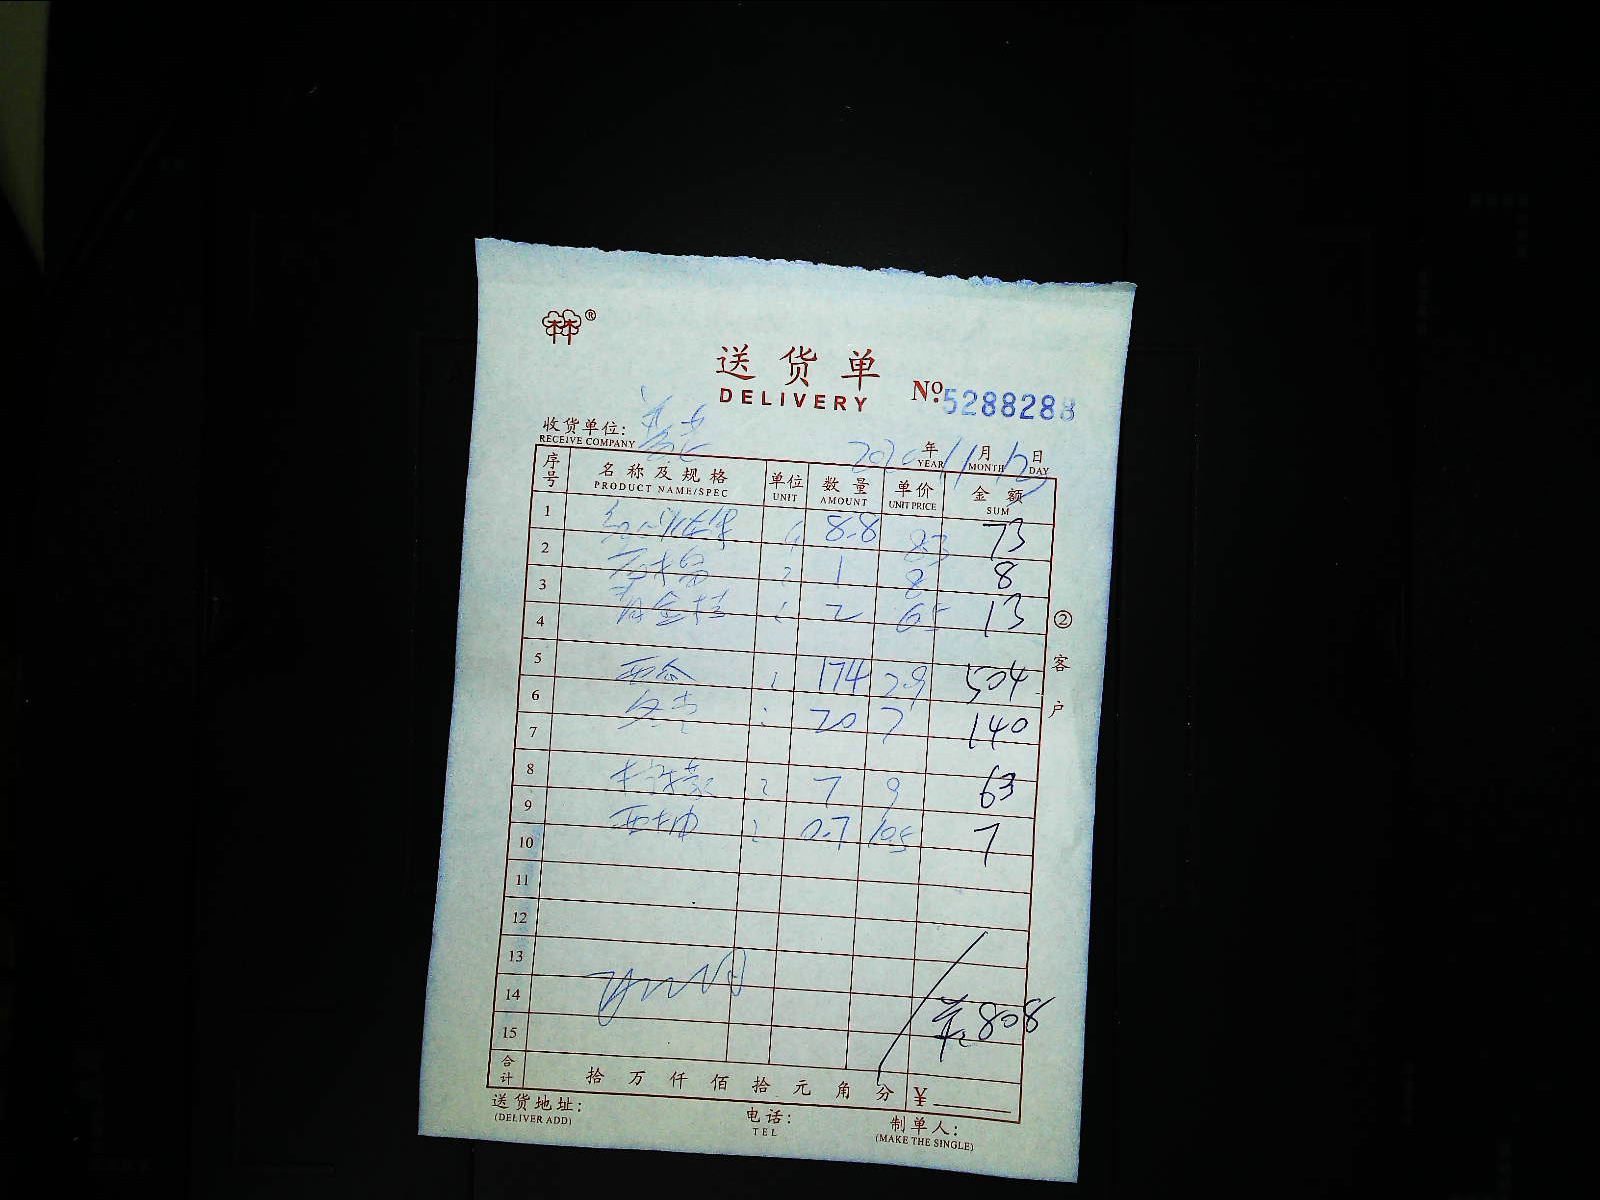 ®
送货单
DELIVERY
No. 5288288
收货单位:
RECEIVE COMPANY
2020 年 11 月 12 日
YEAR MONTH DAY
序号 名称及规格 单位 数量 单价 金额
PRODUCT NAME/SPEC UNIT AMOUNT UNIT PRICE SUM
1 8.8 8.3 73
2 1 8 8
3 2 6.5 13
4
5 西 174 2.9 504
6 20 7 140
7
8 7 9 63
9 西柚 0.7 10.5 7
10
11
12
13
14 808
15
合计 拾 万 仟 佰 拾 元 角 分 ¥
送货地址: 电话: 制单人:
(DELIVER ADD) TEL (MAKE THE SINGLE)
② 客户